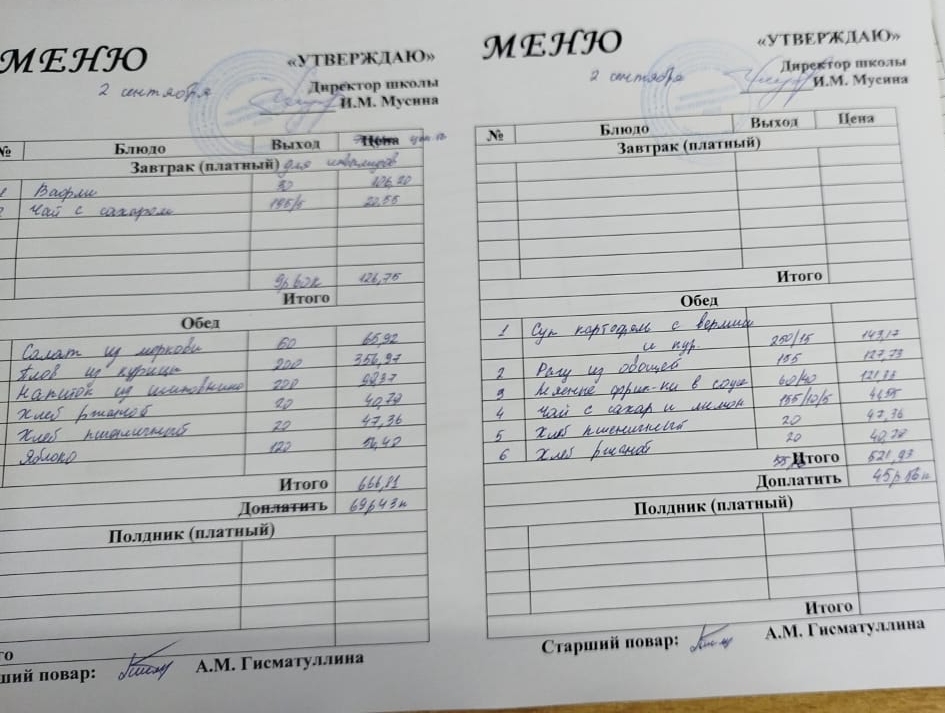 МЕНЮ
«УТВЕРЖДАЮ»
2 сентября
Директор школы
И.М. Мусина
№ Блюдо Выход Цена
Завтрак (платный) для инвалидов
Вафли 30 106,20
Чай с сахаром 195/5 20,55
9р 60к 126,75
Итого
Обед
Салат из моркови 60 65,92
Плов из курицы 200 356,97
Напиток из шиповника 200
Хлеб ржаной 20 40,78
Хлеб пшеничный 20 47,36
Яблоко 120 56,40
Итого 666,81
Доплатить 69р43к
Полдник (платный)
го
ший повар: А.М. Гисматуллина
МЕНЮ
«УТВЕРЖДАЮ»
2 сентября
Директор школы
И.М. Мусина
№ Блюдо Выход Цена
Завтрак (платный)
Итого
Обед
1 Суп картофель с вермиш
и кур. 250/15 143,17
2 Рагу из овощей 155 127,73
3 Мясные фрик-ки в соусе 60/40 121,33
4 Чай с сахар и лимон 195/10/5
5 Хлеб пшеничный 20 47,36
6 Хлеб ржаной 20 40,78
Итого 521,93
Доплатить 45р
Полдник (платный)
Итого
Старший повар: А.М. Гисматуллина